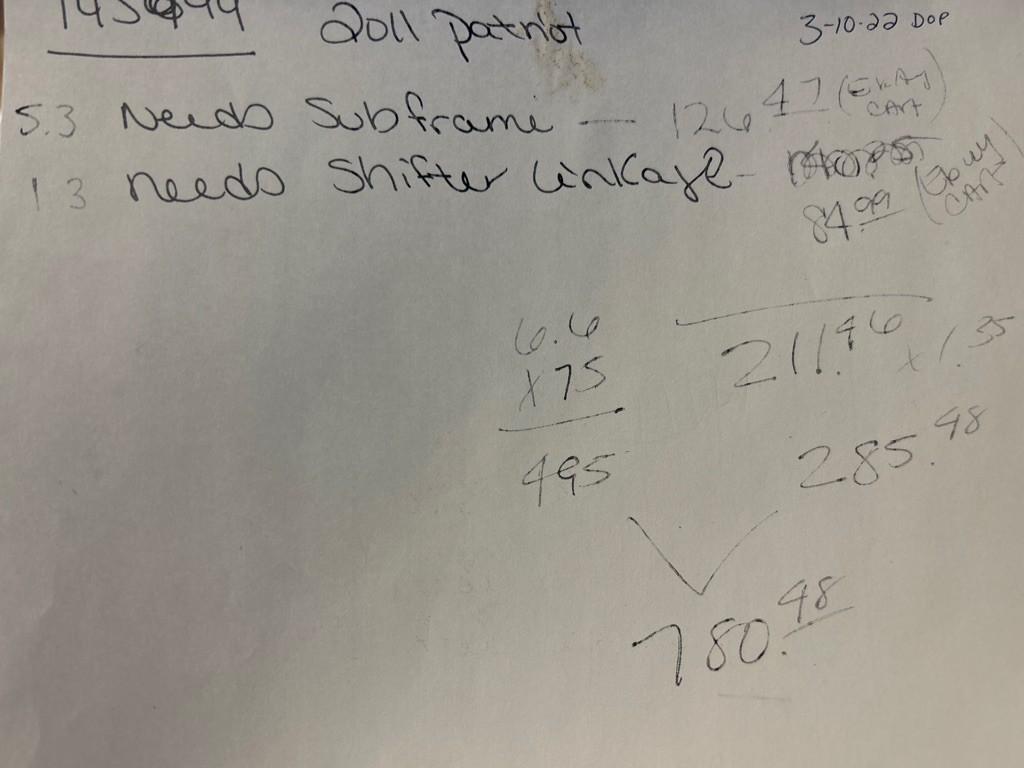 2011 patriot 3-10-22 DOP
5.3 Needs Subframe — 126.47 (Ebay CART)
1.3 needs Shifter Linkage - 84.99 (Ebay CART)
6.6
x 75
495
211.46 x 1.35
285.48
780.48